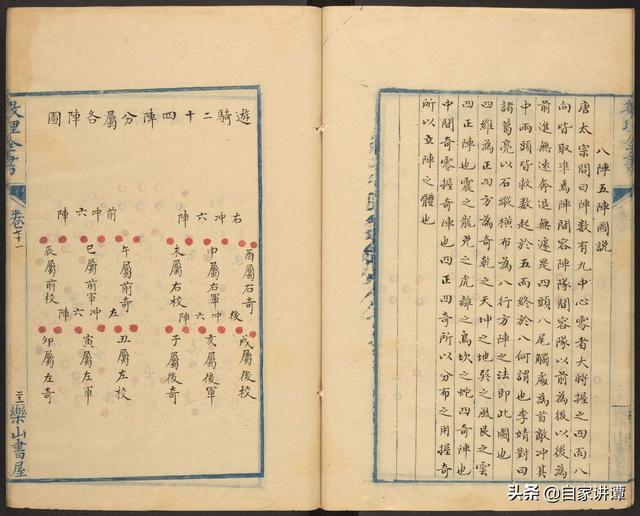 八陣五陣圖說
唐太宗問曰陣数有九中心零者大將握之四面八
向皆取準焉陣間容陣隊間容隊以前為後以後為
前進無速奔退無遽是四頭八尾觸處為首敵冲其
中兩頭皆救数起於五而終於八何謂也李靖對曰
諸葛亮以石縱橫布為八行方陣之法即此圖也
四維為正四方為奇乾之天坤之地巽之風艮之雲
四正陣也震之龍兑之虎離之鳥坎之蛇四奇陣也
中間奇零握奇陣也四正四奇所以分布之用握奇
所以立陣之體也
遊騎二十四陣分屬各陣圖
右冲六陣
酉屬右奇
申屬右軍
未屬右校
前冲六陣
午屬前奇
巳屬前軍
辰屬前校
後冲六陣
戌屬後校
亥屬後軍
子屬後奇
左冲六陣
丑屬左校
寅屬左軍
卯屬左奇
数理全書
樂山書屋
头条 @自家讲谭